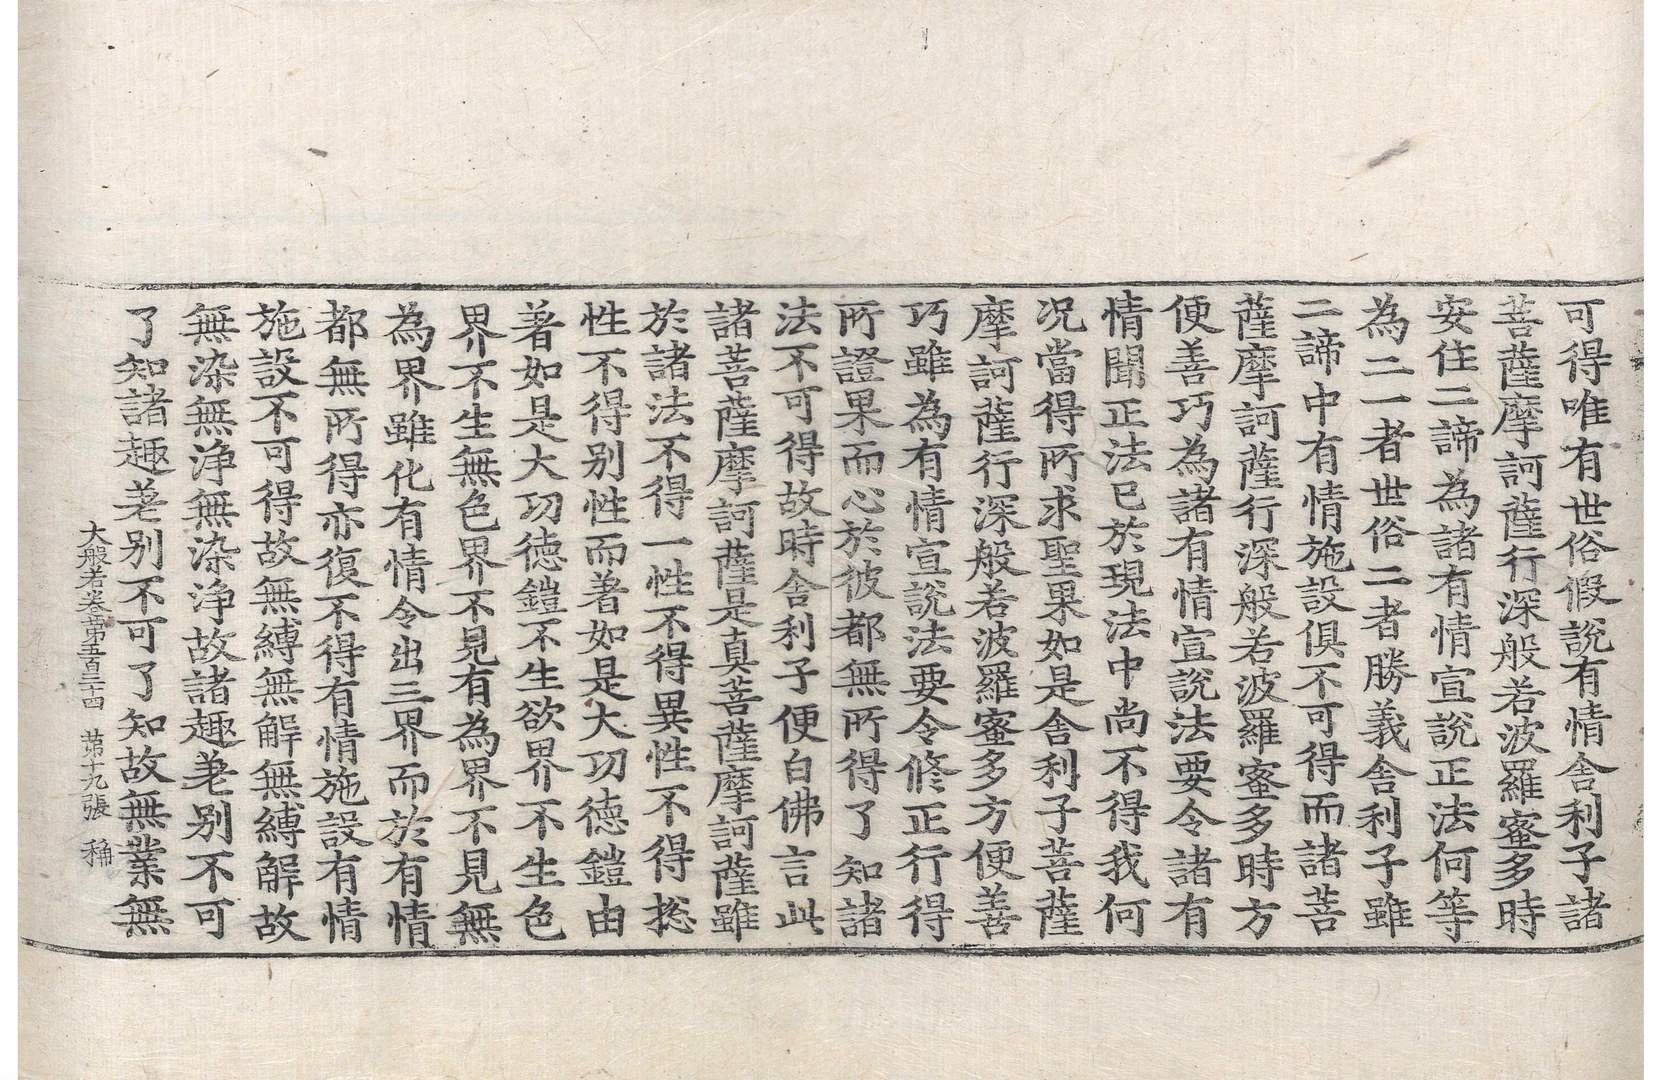 可得唯有世俗假說有情舍利子諸
菩薩摩訶薩行深般若波羅蜜多時
安住二諦為諸有情宣說正法何等
為二一者世俗二者勝義舍利子雖
二諦中有情施設俱不可得而諸菩
薩摩訶薩行深般若波羅蜜多時方
便善巧為諸有情宣說法要令諸有
情聞正法已於現法中尚不得我何
況當得所求聖果如是舍利子菩薩
摩訶薩行深般若波羅蜜多方便善
巧雖為有情宣說法要令修正行得
所證果而心於彼都無所得了知諸
法不可得故時舍利子便白佛言此
諸菩薩摩訶薩是真菩薩摩訶薩雖
於諸法不得一性不得異性不得捴
性不得別性而著如是大功德鎧由
著如是大功德鎧不生欲界不生色
界不生無色界不見有為界不見無
為界雖化有情令出三界而於有情
都無所得亦復不得有情施設有情
施設不可得故無縛無解無縛解故
無染無淨無染淨故諸趣差別不可
了知諸趣差別不可了知故無業無
大般若卷第五百三十四 第十九張 稱